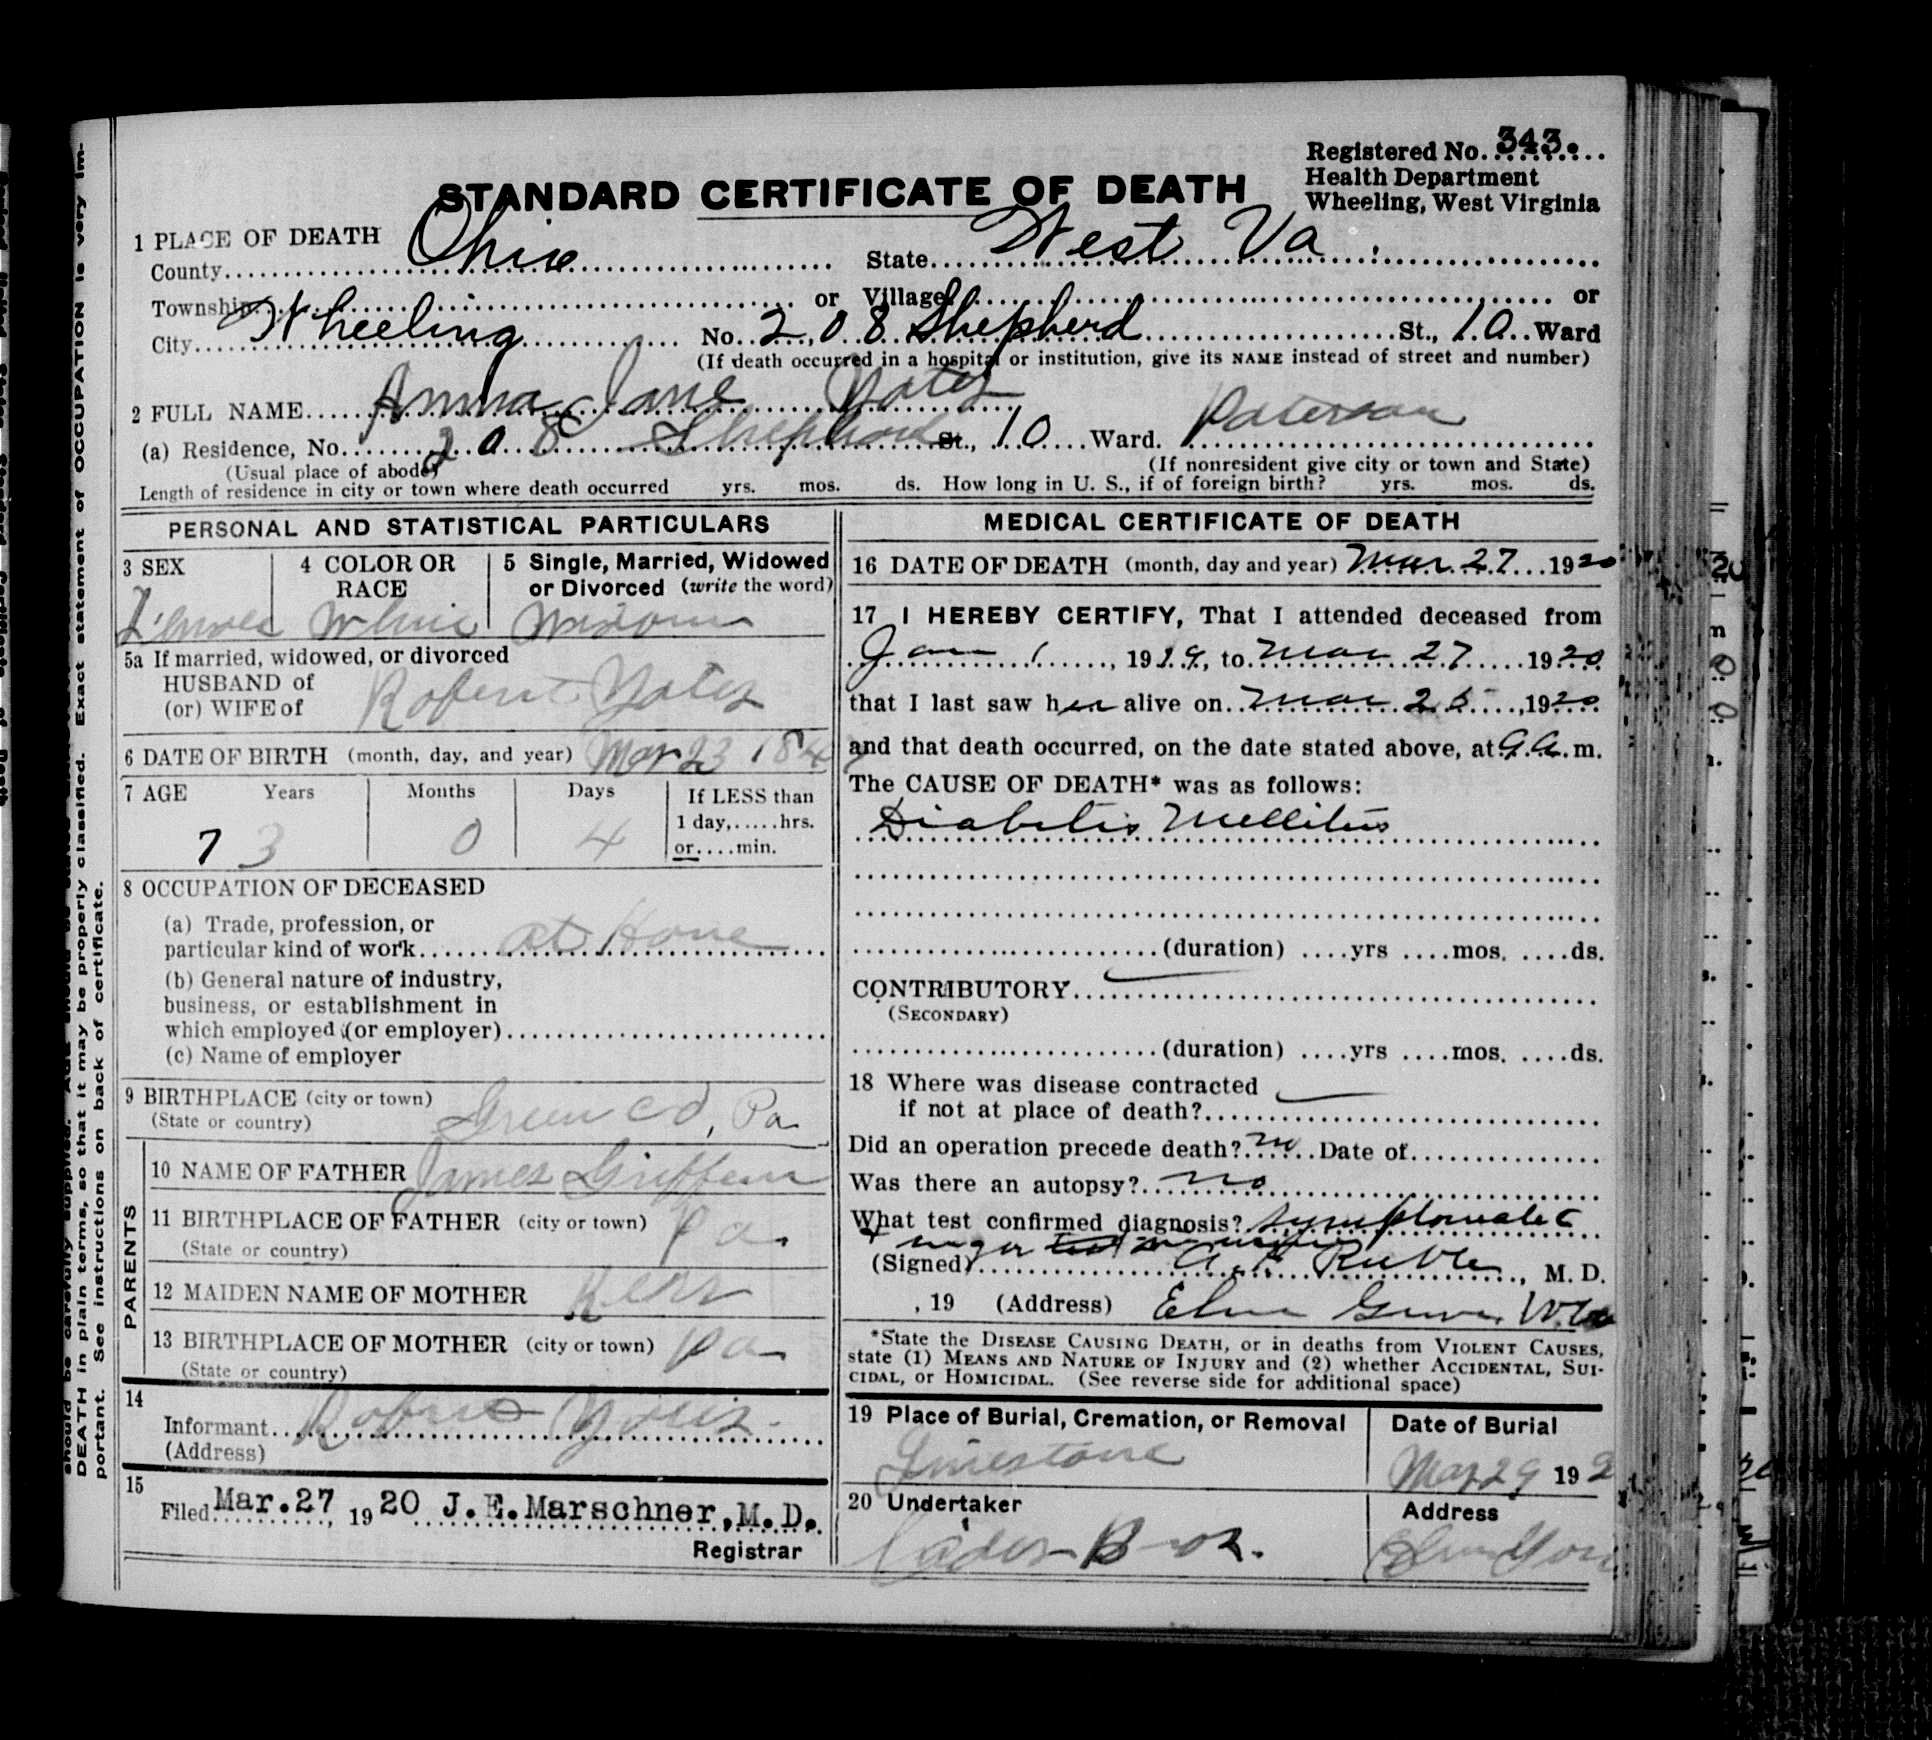 Registered No. 343.
Health Department
Wheeling, West Virginia
STANDARD CERTIFICATE OF DEATH
1 PLACE OF DEATH
County Ohio State West Va.
Township or Village or
City Wheeling No. 208 Shepherd St., 10 Ward
(If death occurred in a hospital or institution, give its NAME instead of street and number)
2 FULL NAME Anna Jane Yates
(a) Residence, No. 208 Shepherd St., 10 Ward.
(Usual place of abode) (If nonresident give city or town and State)
Length of residence in city or town where death occurred yrs. mos. ds. How long in U. S., if of foreign birth? yrs. mos. ds.
PERSONAL AND STATISTICAL PARTICULARS
3 SEX 4 COLOR OR RACE 5 Single, Married, Widowed or Divorced (write the word)
Female White Widow
5a If married, widowed, or divorced
HUSBAND of
(or) WIFE of Robert Yates
6 DATE OF BIRTH (month, day, and year) Mar 23 1847
7 AGE Years Months Days If LESS than
1 day, hrs.
73 0 4 or min.
8 OCCUPATION OF DECEASED
(a) Trade, profession, or
particular kind of work at Home
(b) General nature of industry,
business, or establishment in
which employed (or employer)
(c) Name of employer
9 BIRTHPLACE (city or town) Green Co, Pa
(State or country)
PARENTS
10 NAME OF FATHER James Griffin
11 BIRTHPLACE OF FATHER (city or town) Pa.
(State or country)
12 MAIDEN NAME OF MOTHER Kerr
13 BIRTHPLACE OF MOTHER (city or town) Pa
(State or country)
14
Informant Robert Yates
(Address)
15
Filed Mar. 27, 1920 J.E.Marschner, M.D.
Registrar
MEDICAL CERTIFICATE OF DEATH
16 DATE OF DEATH (month, day and year) Mar 27 1920
17 I HEREBY CERTIFY, That I attended deceased from
Jan 1, 1919, to Mar 27 1920
that I last saw her alive on Mar 25, 1920
and that death occurred, on the date stated above, at m.
The CAUSE OF DEATH* was as follows:
Diabetis Mellitus
(duration) yrs mos. ds.
CONTRIBUTORY
(SECONDARY)
(duration) yrs mos. ds.
18 Where was disease contracted
if not at place of death?
Did an operation precede death? no Date of
Was there an autopsy? no
What test confirmed diagnosis?
(Signed) Ruble, M. D.
, 19 (Address) Elm Grove, W.Va
*State the DISEASE CAUSING DEATH, or in deaths from VIOLENT CAUSES,
state (1) MEANS AND NATURE OF INJURY and (2) whether ACCIDENTAL, SUI-
CIDAL, or HOMICIDAL. (See reverse side for additional space)
19 Place of Burial, Cremation, or Removal Date of Burial
Limestone Mar 29 192
20 Undertaker Address
Bros. Elm Grov
DEATH in plain terms, so that it may be properly classified. Exact statement of OCCUPATION is very im-
portant. See instructions on back of certificate.